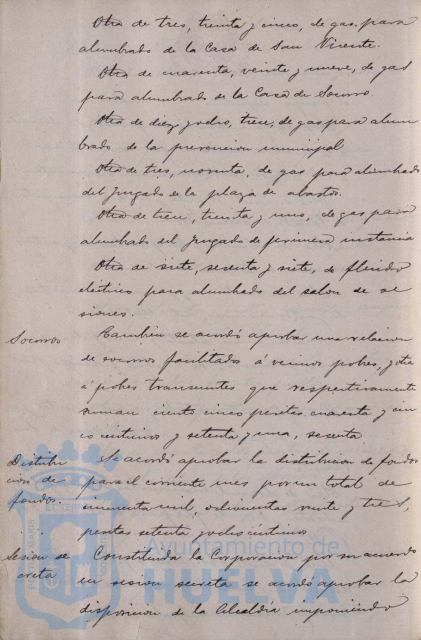 Otra de tres, treinta y cinco, de gas para
alumbrado de la Casa de San Vicente.
Otra de cuarenta, veinte y nueve, de gas
para alumbrado de la Casa de Socorro.
Otra de diez y ocho, trece, de gas para alum
brado de la prevencion municipal
Otra de tres, noventa, de gas para alumbrado
del Juzgado de la plaza de abastos.
Otra de trece, treinta y uno, de gas para
alumbrado del Juzgado de primera instancia
Otra de siete, sesenta y siete, de fluido
eléctrico para alumbrado del salon de se
siones.
Socorros
Tambien se acordó aprobar una relacion
de socorros facilitados á vecinos pobres, y otra
á pobres transeuntes que respectivamente
suman ciento cinco pesetas cuarenta y cin
co centimos y setenta y una, sesenta
Distribu
cion de
fondos.
Se acordó aprobar la distribucion de fondos
para el corriente mes por un total de
cincuenta mil, ochocientas veinte y tres,
pesetas setenta y ocho centimos
Sesion se
creta
Constituida la Corporacion por su acuerdo
en sesion secreta se acordó aprobar la
disposicion de la Alcaldia imponiendo
Ayuntamiento de
HUELVA